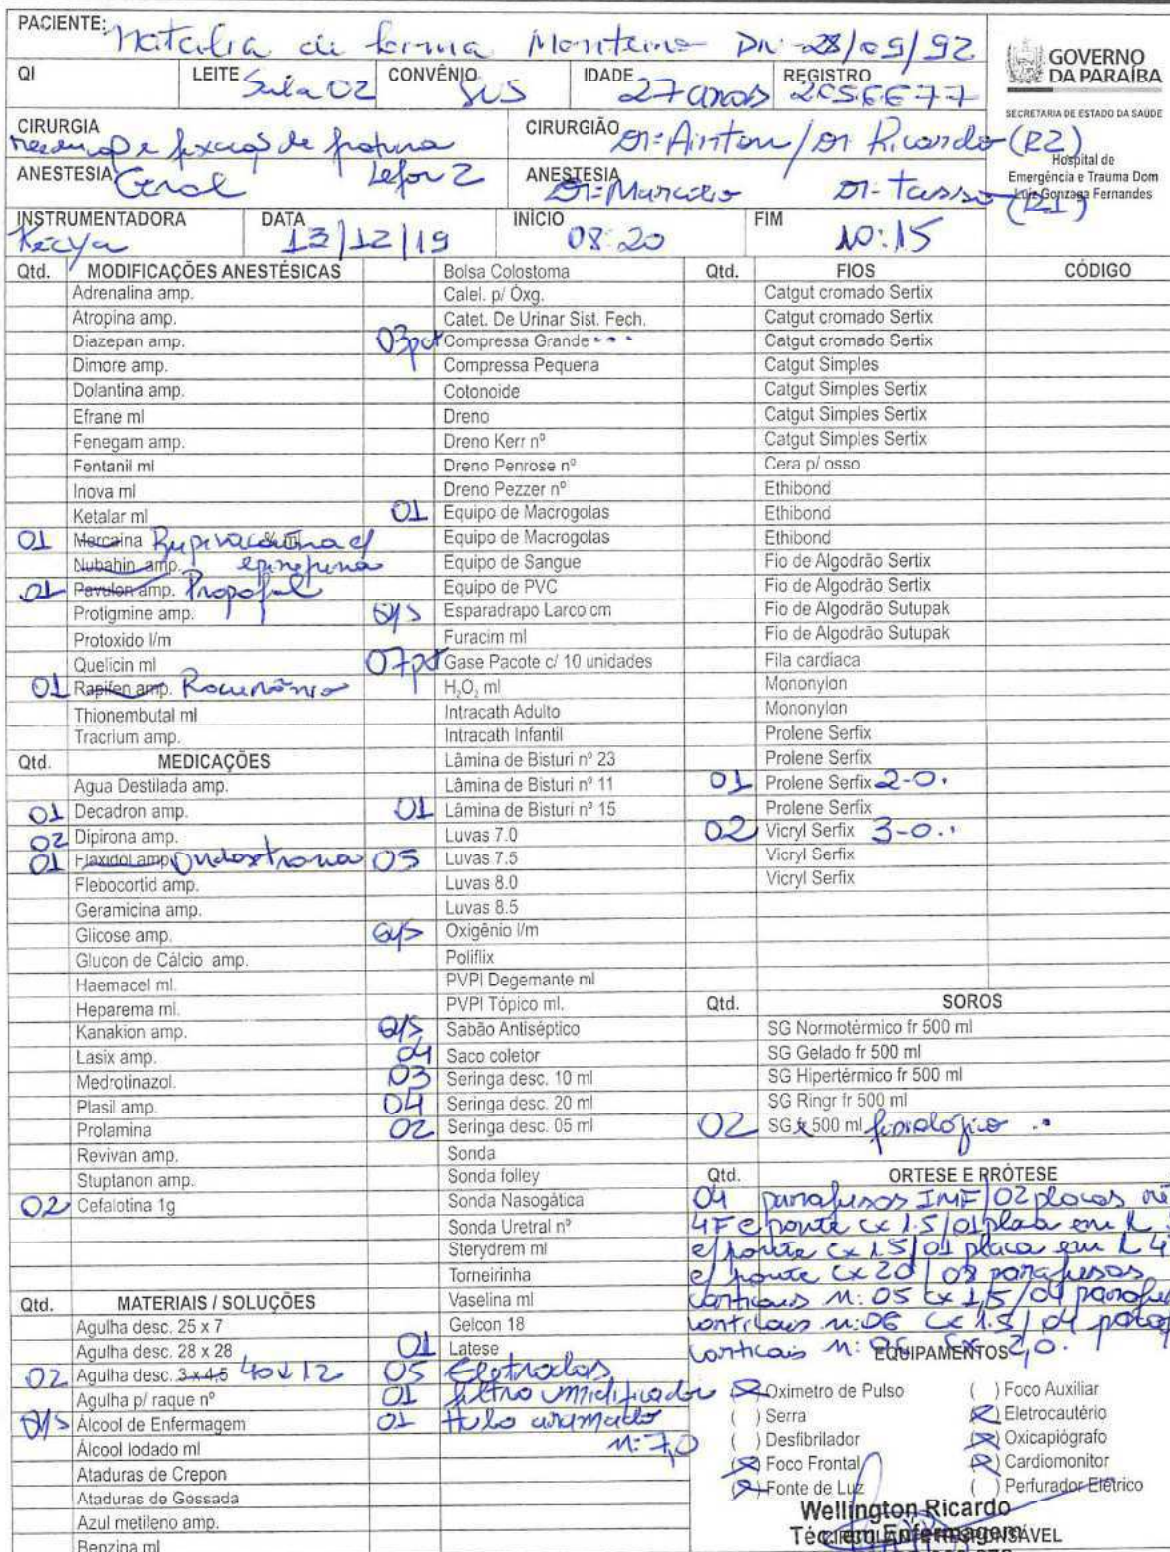 PACIENTE: Natalia de Monteiro DN - 28/09/92
GOVERNO
DA PARAÍBA
SECRETARIA DE ESTADO DA SAÚDE
Hospital de
Emergência e Trauma Dom
Luiz Gonzaga Fernandes
QI LEITE Sala 02 CONVÊNIO SUS IDADE 27 anos REGISTRO 2056677
CIRURGIA redução e fixação de fratura Lefor 2 CIRURGIÃO Dr: Airton / Dr Ricardo (R2)
ANESTESIA Geral ANESTESIA Dr: Dr- Tasso (R1)
INSTRUMENTADORA Kecya DATA 13/12/19 INÍCIO 08:20 FIM 10:15
Qtd. MODIFICAÇÕES ANESTÉSICAS
Adrenalina amp.
Atropina amp.
Diazepan amp.
Dimore amp.
Dolantina amp.
Efrane ml
Fenegam amp.
Fentanil ml
Inova ml
Ketalar ml
01 Marcaina Bupivacaina c/
Nubahin amp. epinefrina
01 Pavulon amp. Propofol
Protigmine amp.
Protoxido l/m
Quelicin ml
01 Rapifen amp. Rocurônio
Thionembutal ml
Tracrium amp.
Qtd. MEDICAÇÕES
Agua Destilada amp.
01 Decadron amp.
02 Dipirona amp.
01 Flaxidol amp. Ondastrona
Flebocortid amp.
Geramicina amp.
Glicose amp.
Glucon de Cálcio amp.
Haemacel ml.
Heparema ml.
Kanakion amp.
Lasix amp.
Medrotinazol.
Plasil amp.
Prolamina
Revivan amp.
Stuptanon amp.
02 Cefalotina 1g
Qtd. MATERIAIS / SOLUÇÕES
Agulha desc. 25 x 7
Agulha desc. 28 x 28
02 Agulha desc. 3 x 4,5 40 x 12
Agulha p/ raque nº
Q/S Álcool de Enfermagem
Álcool Iodado ml
Ataduras de Crepon
Ataduras de Gessada
Azul metileno amp.
Benzina ml
Bolsa Colostoma
Catel. p/ Óxg.
Catet. De Urinar Sist. Fech.
03pct Compressa Grande
Compressa Pequera
Cotonoide
Dreno
Dreno Kerr nº
Dreno Penrose nº
Dreno Pezzer nº
01 Equipo de Macrogolas
Equipo de Macrogolas
Equipo de Sangue
Equipo de PVC
Q/S Esparadrapo Larco cm
Furacim ml
07pct Gase Pacote c/ 10 unidades
H₂O₂ ml
Intracath Adulto
Intracath Infantil
Lâmina de Bisturi nº 23
Lâmina de Bisturi nº 11
01 Lâmina de Bisturi nº 15
Luvas 7.0
05 Luvas 7.5
Luvas 8.0
Luvas 8.5
Q/S Oxigênio l/m
Poliflix
PVPI Degemante ml
PVPI Tópico ml.
Q/S Sabão Antiséptico
04 Saco coletor
03 Seringa desc. 10 ml
04 Seringa desc. 20 ml
02 Seringa desc. 05 ml
Sonda
Sonda folley
Sonda Nasogática
Sonda Uretral nº
Sterydrem ml
Torneirinha
Vaselina ml
Gelcon 18
01 Latese
05 Eletrodos
01 filtro umidificador
01 tubo aramado
n: 7,0
Qtd. FIOS CÓDIGO
Catgut cromado Sertix
Catgut cromado Sertix
Catgut cromado Sertix
Catgut Simples
Catgut Simples Sertix
Catgut Simples Sertix
Catgut Simples Sertix
Cera p/ osso
Ethibond
Ethibond
Ethibond
Fio de Algodrão Sertix
Fio de Algodrão Sertix
Fio de Algodrão Sutupak
Fio de Algodrão Sutupak
Fila cardiaca
Mononylon
Mononylon
Prolene Serfix
Prolene Serfix
01 Prolene Serfix 2-0.
Prolene Serfix
02 Vicryl Serfix 3-0..
Vicryl Serfix
Vicryl Serfix
Qtd. SOROS
SG Normotérmico fr 500 ml
SG Gelado fr 500 ml
SG Hipertérmico fr 500 ml
SG Ringr fr 500 ml
02 SG fr 500 ml fisiológico
Qtd. ORTESE E RRÓTESE
04 parafusos IMF / 02 placas
4F c ponte cx 1.5 / 01 placa em L
c/ ponte cx 1.5 / 01 placa em L 4
c/ ponte cx 20 / 08 parafusos
corticais n: 05 cx 1,5 / 04
corticais n: 06 cx 1.5 / 04
corticais n: 06 cx 2,0.
EQUIPAMENTOS
(x) Oximetro de Pulso ( ) Foco Auxiliar
( ) Serra (x) Eletrocautério
( ) Desfibrilador (x) Oxicapiógrafo
(x) Foco Frontal (x) Cardiomonitor
(x) Fonte de Luz ( ) Perfurador Elétrico
Wellington Ricardo
Téc. em Enfermagem
CIRCULANTE RESPONSÁVEL